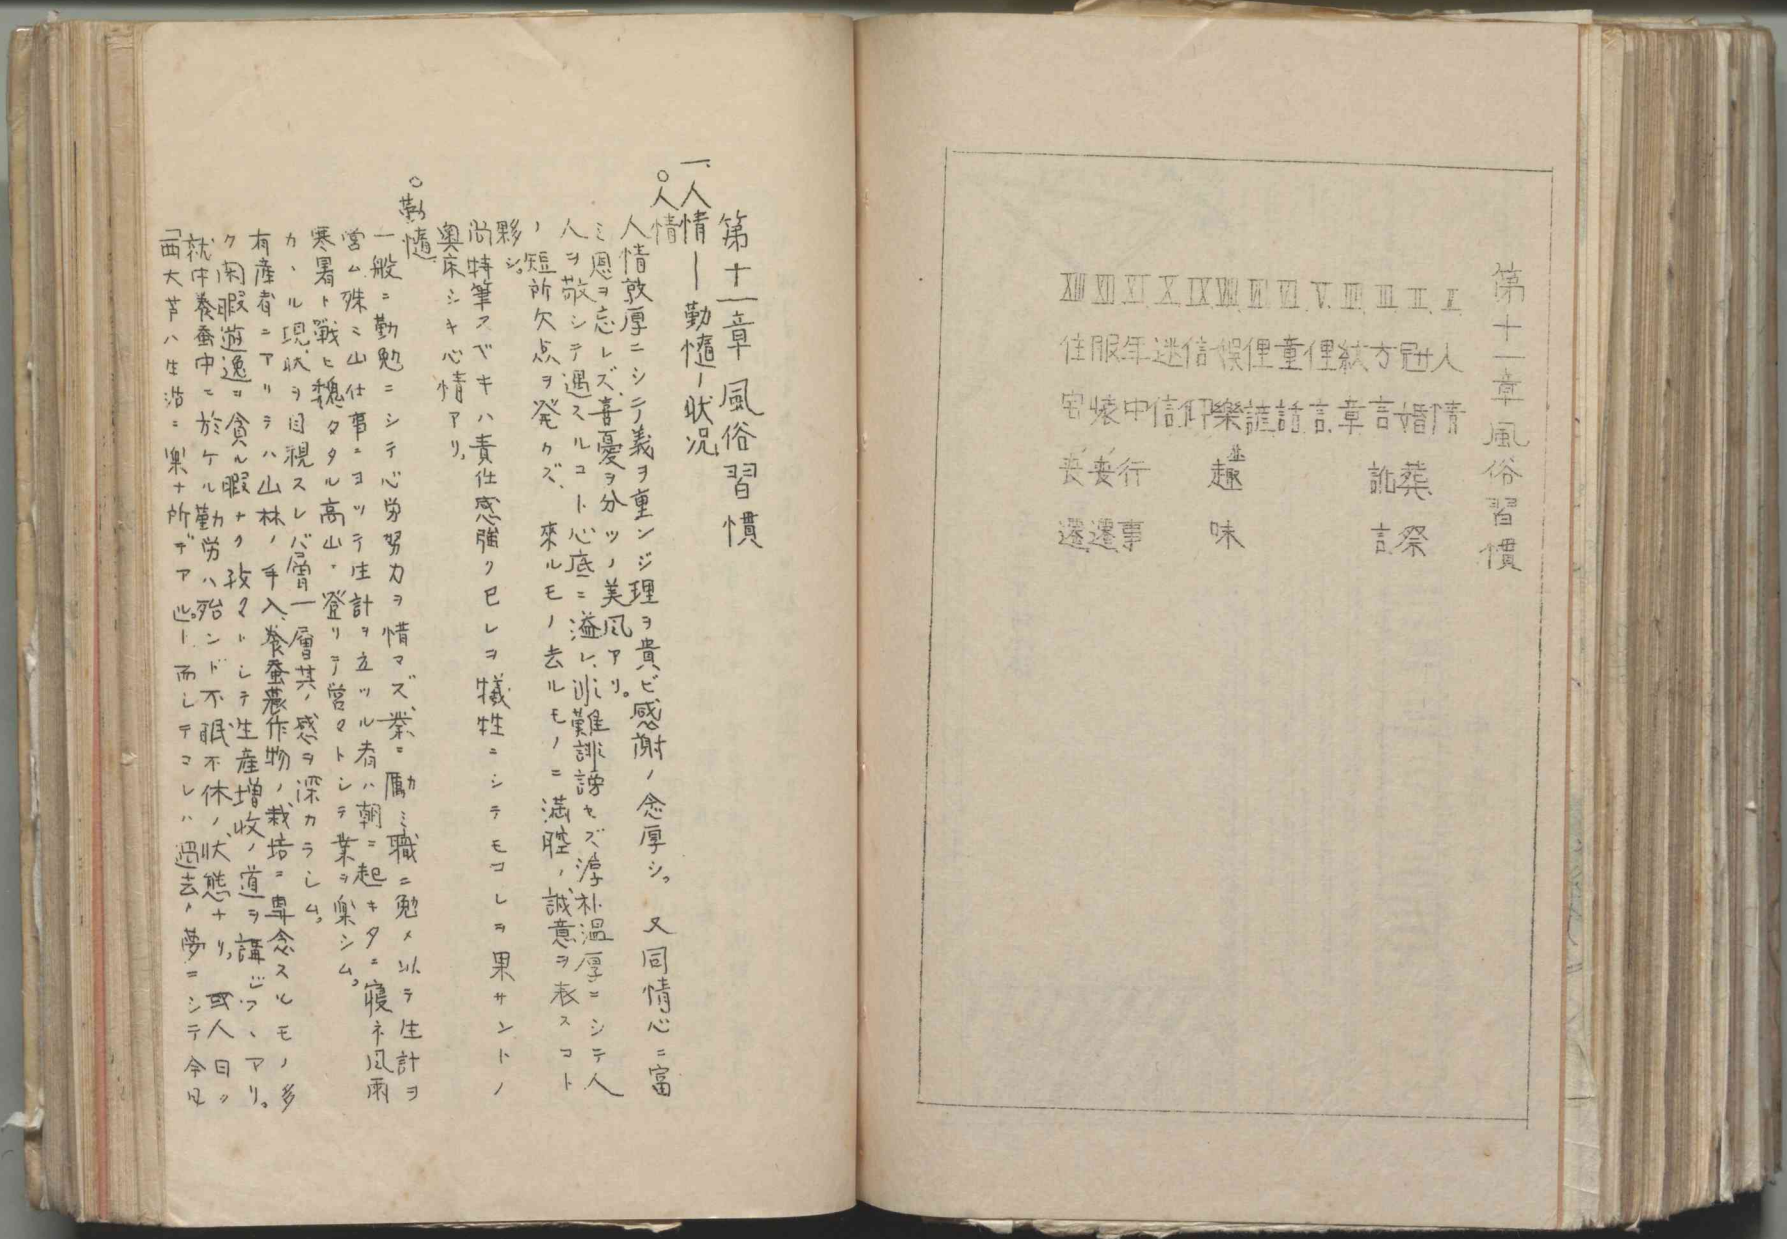 第十一章風俗習慣
I 人情
II 冠婚葬祭
III 方言訛言
IIII 紋章
V 俚言
VI 童話
VII 俚諺
VIII 娯樂趣味
IX 信仰
X 迷信
XI 年中行事
XII 服装変遷
XIII 住宅変遷
第十一章 風俗習慣
一、人情ー勤惰ノ状況
○人情
人情敦厚ニシテ義ヲ重ンジ理ヲ貴ビ感謝ノ念厚シ。又同情心ニ富
ミ恩ヲ忘レズ、喜憂ヲ分ツノ美風アリ。
人ヲ敬シテ遇スルコト心底ニ溢レ、非難誹謗セズ淳朴温厚ニシテ人
ノ短所欠点ヲ発クズ、來ルモノ去ルモノニ満腔ノ誠意ヲ表スコト
夥シ。
尚特筆スベキハ責任感強ク已レヲ犠牲ニシテモコレヲ果サントノ
奥床シキ心情アリ。
○勤惰
一般ニ勤勉ニシテ心労努力ヲ惜マズ、業ニ励ミ職ニ勉メ以テ生計ヲ
営ム殊ニ山仕事ニヨッテ生計ヲ立ツル者ハ朝ニ起キタニ寝ネ風雨
寒暑ト戦ヒ魏タタル高山ニ登リテ営マトシテ業ヲ楽シム。
カヽル現状ヲ目視スレバ層一層其ノ感ヲ深カラシム。
有産者ニアリテハ山林ノ手入、養蚕農作物ノ栽培ニ専念スルモノ多
ク閑暇遊逸ヲ貪ル暇ナク孜マトシテ生産増收ノ道ヲ講ジツヽアリ。
就中養蚕中ニ於ケル勤労ハ殆ンド不眠不休ノ状態ナリ。或人曰ク
「西大芦ハ生活ニ楽ナ所デアル」而シテコレハ過去ノ夢ニシテ今日